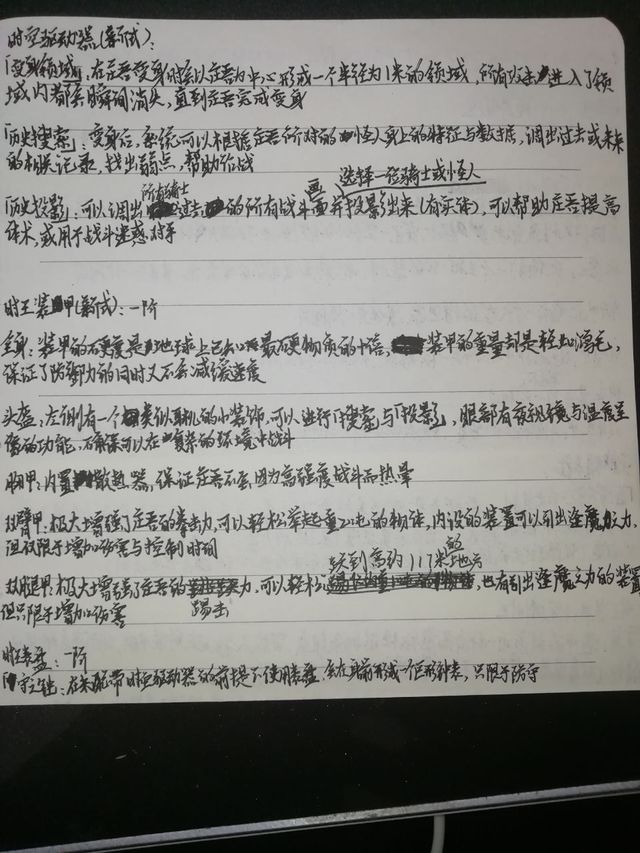 时空驱动器(新式):
「变身领域」:在庄吾变身时会以庄吾为中心形成一个半径为1米的领域,所有攻击进入了领
域内都会瞬间消失,直到庄吾完成变身
「历史搜索」:变身后,系统可以根据庄吾所对的怪人身上的特征与数据,调出过去或未来
的相关记录,找出弱点,帮助作战
选择一位骑士或怪人
所有骑士
「历史投影」:可以调出过去的所有战斗画面并投影出来(有实体),可以帮助庄吾提高
体术,或用于战斗迷惑对手
时王装甲(新式):一阶
全身:装甲的硬度是地球上已知最硬物质的十倍,装甲的重量却是轻如鸿毛,
保证了防御力的同时又不会减缓速度
头盔:左侧有一个类似耳机的小装饰,可以进行「搜索」与「投影」,眼部有夜视镜与温度呈
像的功能,确保可以在复杂的环境中战斗
胸甲:内置散热器,保证庄吾不会因为高强度战斗而热晕
双臂甲:极大增强了庄吾的拳击力,可以轻松举起重的物体,内设的装置可以引出逢魔之力,
但仅限于增加伤害与控制时间
跃到高约117米的地方
双腿甲:极大增强了庄吾的力,可以轻松,也有引出逢魔之力的装置
但只限于增加伤害
踢击
时王表盘:一阶
「守护」:在未配带时空驱动器的前提下使用表盘,会在身前形成一个巨形钟表,只限于防守